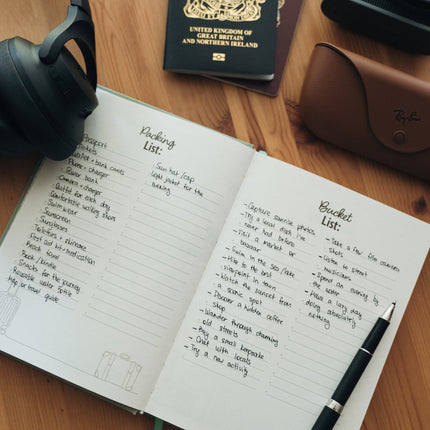 UNITED KINGDOM OF
GREAT BRITAIN
AND NORTHERN IRELAND
Ray-Ban
Packing
List:
Passport
Tickets
Wallet + bank cards
Phone + charger
Power bank
Camera + charger
Outfit for each day
Comfortable walking shoes
Swimwear
Sunscreen
Sunglasses
Toiletries + skincare
First aid kit + medication
Beach towel
Book / kindle
Snacks for the journey
Reusable water bottle
Map or travel guide
Sun hat / cap
Light jacket for the
evening
Bucket
List:
- Capture sunrise photos
- Try a local dish I've
never had before
- Visit a market or
bazaar
- Swim in the sea / lake
- Hike to the best
viewpoint in town
- Watch the sunset from
a scenic spot
- Discover a hidden coffee
shop
- Wander through charming
old streets
- Buy a small keepsake
- Chat with locals
- Try a new activity
- Take a few film camera
shots
- Listen to street
musicians
- Spend an evening by
the water
- Have a lazy day
doing absolutely
nothing